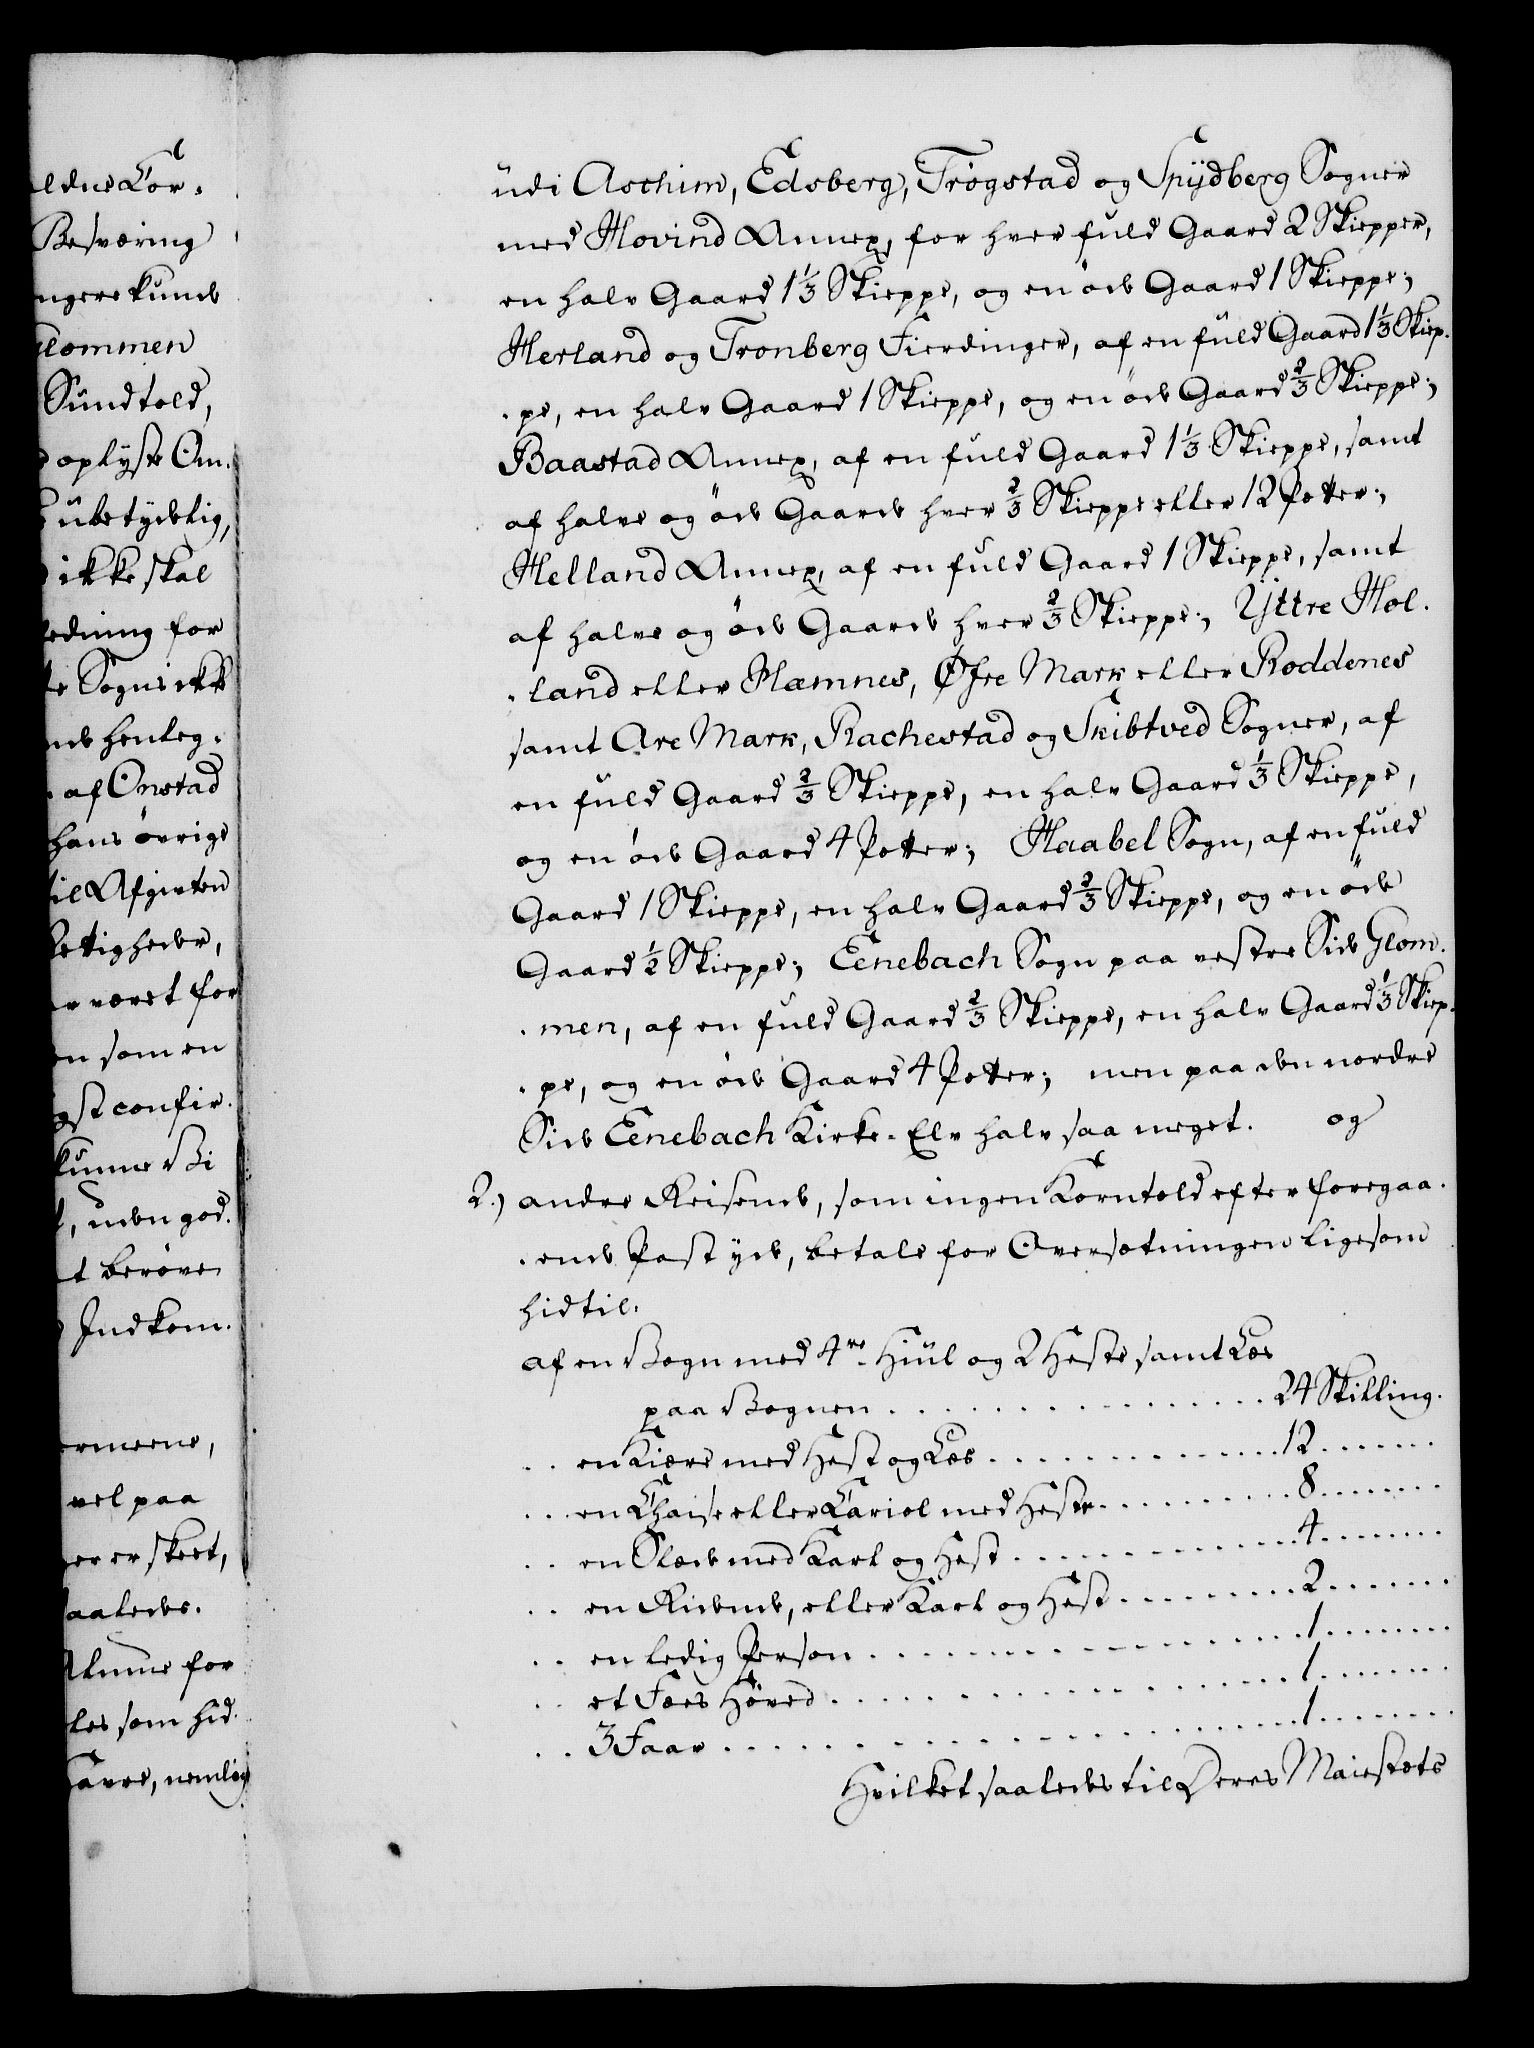 eldne Kor-
Besværing
ngere kunde
Glommen
Sundtold,
oplyste Om-
ubetydelig,
ikke skal
edning for
te Sogns ikke
nde henleg-
af Onstad
hans övrige
til Afgivten
Rettigheder,
r været for
en som en
gst confir-
kunne Bi
, uden god-
t beröve
Indkom-
ermerne,
vel paa
er er skeet,
saaledes.
Alune for
les som hid-
Havre, nemlig
udi Aschim, Edsberg, Trögstad og Spydberg Sogner
med Hovind Annex, for hver fuld Gaard 2 Skiepper,
en halv Gaard 1⅓ Skieppe, og en öde Gaard 1 Skieppe;
Herland og Tronberg Fierdinger, af en fuld Gaard 1⅓ Skiep-
-pe, en halv Gaard 1 Skieppe, og en öde Gaard ⅔ Skieppe;
Baastad Annex, af en fuld Gaard 1⅓ Skieppe, samt
af halve og öde Gaarde hver ⅔ Skieppe eller 12 Potter;
Helland Annex, af en fuld Gaard 1 Skieppe, samt
af halve og öde Gaarde hver ⅔ Skieppe; Yttre Hol-
-land eller Hæmnes, Øfre Mark eller Roddenes
samt Are Mark, Rachestad og Skibtved Sogner, af
en fuld Gaard ⅔ Skieppe, en halv Gaard ⅓ Skieppe,
og en öde Gaard 4 Potter; Haabel Sogn, af en fuld
Gaard 1 Skieppe, en halv Gaard ⅔ Skieppe, og en öde
Gaard ½ Skieppe; Eenebach Sogn paa vestre Side Glom-
-men, af en fuld Gaard ⅔ Skieppe, en halv Gaard ⅓ Skiep-
-pe, og en öde Gaard 4 Potter; men paa den nordre
Side Eenebach Kirke-Elv halv saa meget. og
2.) andre Reisende, som ingen Korntold efter foregaa-
-ende Post yde, betale for Oversætningen ligesom
hidtil.
af en Vogn med 4re Hiul og 2 Heste samt Læs
paa Vognen . . . . . . . . . . 24 Skilling.
. . en Kiære med Hest og Læs . . . . . . . . . . 12 . . . . . .
. . en Chaise eller Cariol med Hest . . . . . . . . . . 8 . . . . . .
. . en Slæde med Karl og Hest . . . . . . . . . . 4 . . . . . .
. . en Ridende, eller Karl og Hest . . . . . . . . . . 2 . . . . . .
. . en ledig Person . . . . . . . . . . 1 . . . . . .
. . et Fæes Höved . . . . . . . . . . 1 . . . . . .
. . 3 Faar . . . . . . . . . . 1 . . . . . .
Hvilket saaledes til Deres Maiestæts